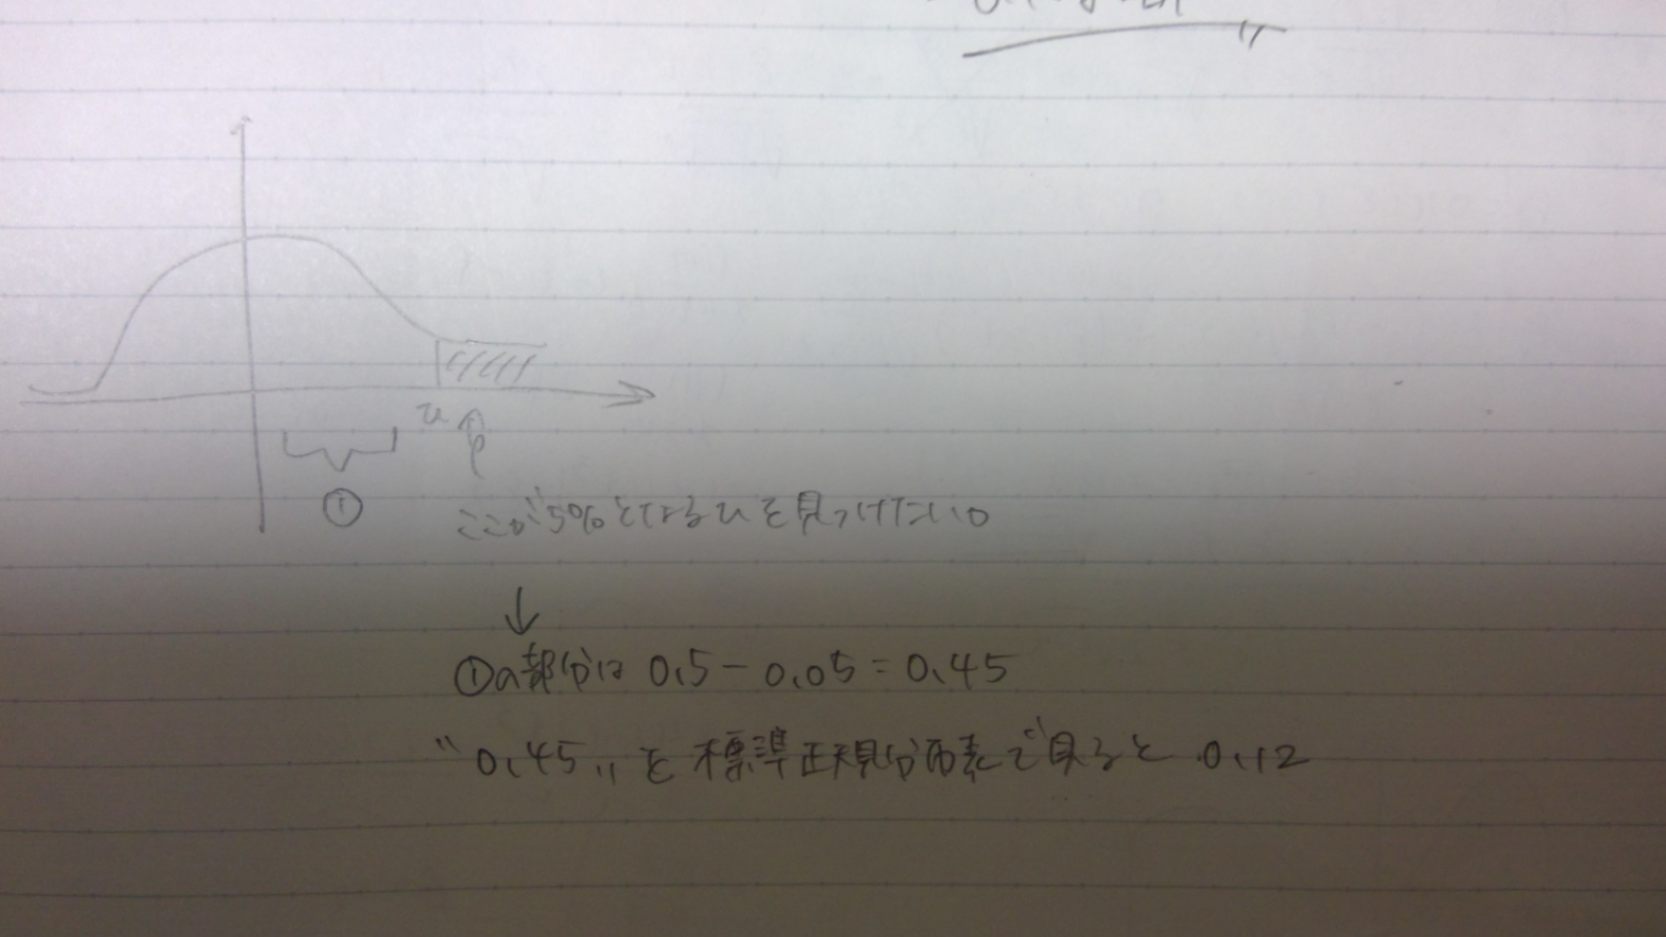 u
①
ここが5%となるuを見つけたい。
↓
①の部分は 0.5-0.05=0.45
"0.45"を標準正規分布表で見ると 0.12